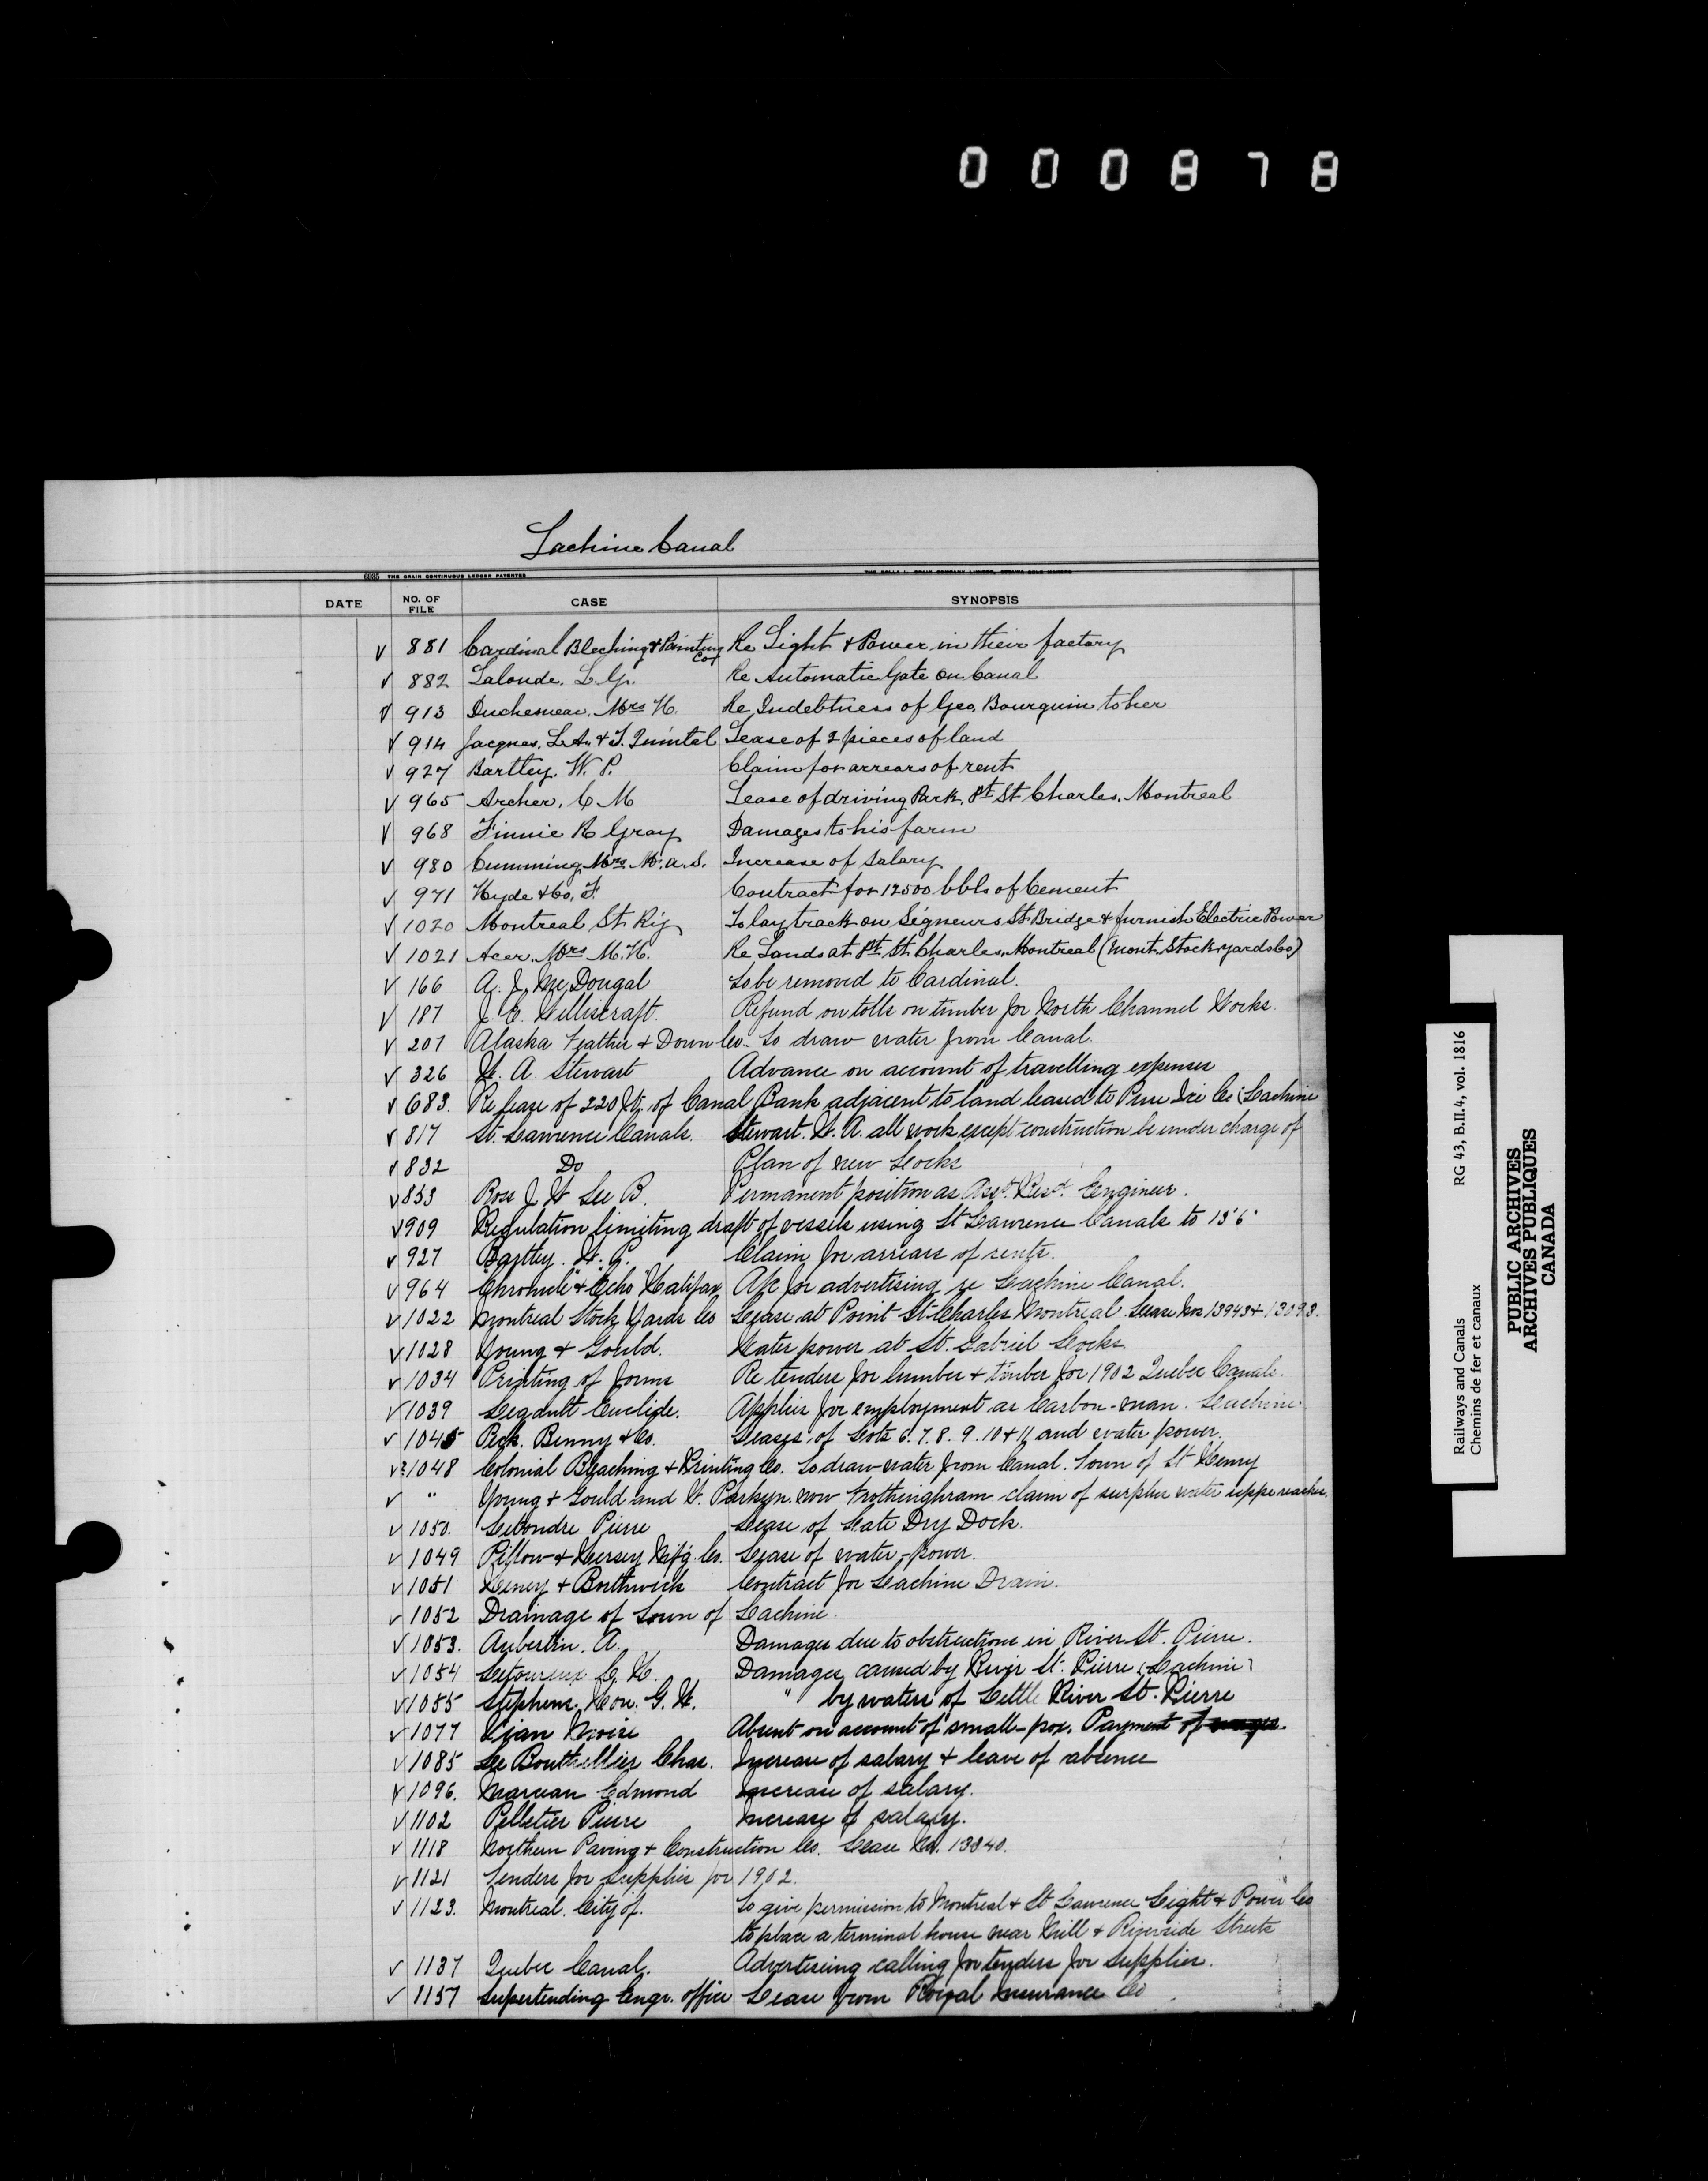 000878
Lachine Canal
6935 THE CRAIN CONTINUOUS LEDGER PATENTED
DATE NO. OF FILE CASE SYNOPSIS
√ 881 Cardinal Bleching & Painting Co. Re Light & Power in their factory
√ 882 Lalonde. L. G. Re Automatic Gate on Canal
√ 913 Mrs H. Re Indebtness of Geo. Bourguin to her
√ 914 Jacques. L.A. & T. Quintal Lease of 2 pieces of land
√ 927 Bartley. W. P. Claim for arrears of rent
√ 965 Archer. C M Lease of driving Park, Pt St Charles, Montreal
√ 968 Finnie R Gray Damages to his farm
√ 980 Cumming Mrs. M. A. S. Increase of salary
√ 971 Hyde & Co. F. Contract for 12500 bbls of Cement
√ 1020 Montreal St. Ry To lay track on Seigneurs St Bridge & furnish Electric Power
√ 1021 Acer. Mrs M. H. Re Lands at Pt. St Charles, Montreal (Mont. Stock yards Co.)
√ 166 A. J. McDougal To be removed to Cardinal.
√ 187 J. C. Refund on tolls on timber for North Channel Works.
√ 207 Alaska Feather & Down Co. To draw water from Canal.
√ 326 W. A. Stewart Advance on account of travelling expenses
√ 683. Re lease of 220 ft. of Canal Bank adjacent to land leased to Pure Ice Co (Lachine
√ 817 St. Lawrence Canals. Stewart. W. A. all work except construction be under charge of
√ 832 Do Plan of new Locks
√ 853 Ross J. W Lee B. Permanent position as Asst. Rest. Engineer.
√ 909 Regulation limiting draft of vessels using St Lawrence Canals to 13'6"
√ 927 Bartley. W. P. Claim for arrears of rents.
√ 964 "Chronicle" & "Echo" Halifax A/c for advertising re Lachine Canal.
√ 1022 Montreal Stock Yards Co Lease at Point St Charles Montreal. Lease Nos 13943 & 13098.
√ 1028 Young & Gould. Water power at St. Gabriel Locks
√ 1034 Printing of forms Re tenders for lumber & timber for 1902 Quebec Canals.
√ 1039 Legault Euclide. Applies for employment as Carbon-man. Lachine
√ 1045 Peck. Benny & Co. Leases of Lots 6. 7. 8. 9. 10 & 11 and water power.
√? 1048 Colonial Bleaching & Printing Co. To draw water from Canal. Town of St Henry
√ " Young & Gould and W. Parkyn. now Frothinghram claim of surplus water reaches.
√ 1050. Pierre Lease of Dry Dock.
√ 1049 Pillow & Hersey M'f'g. Co. Lease of water-power.
√ 1051 Heney & Borthwick Contract for Lachine Drain.
√ 1052 Drainage of Town of Lachine.
√ 1053. Aubertin. A. Damages due to obstructions in River St. Pierre.
√ 1054 Letourneux C. H. Damages caused by River St. Pierre (Lachine)
√ 1055 Stephens, Hon. G. W. " by waters of Little River St. Pierre
√ 1077 Absent on account of small-pox. Payment of
√ 1085 Le Bouthillier Chas. Increase of salary & leave of absence
√ 1096. Marceau Edmond Increase of salary.
√ 1102 Pelletier Pierre Increase of salary.
√ 1118 Northern Paving & Construction Co. Lease No. 13340.
√ 1121 Tenders for supplies for 1902.
√ 1123. Montreal. City of. To give permission to Montreal & St Lawrence Light & Power Co
to place a terminal house near Mill & Riverside Streets
√ 1137 Quebec Canals. Advertising calling for tenders for supplies.
√ 1157 Supertending Engr. office Lease from Royal Insurance Co
Railways and Canals RG 43, B.II.4, vol. 1816
Chemins de fer et canaux
PUBLIC ARCHIVES
ARCHIVES PUBLIQUES
CANADA